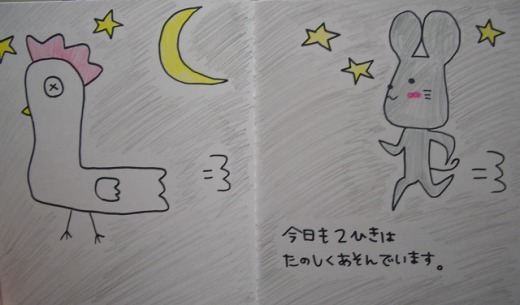 今日も2ひきは
たのしくあそんでいます。